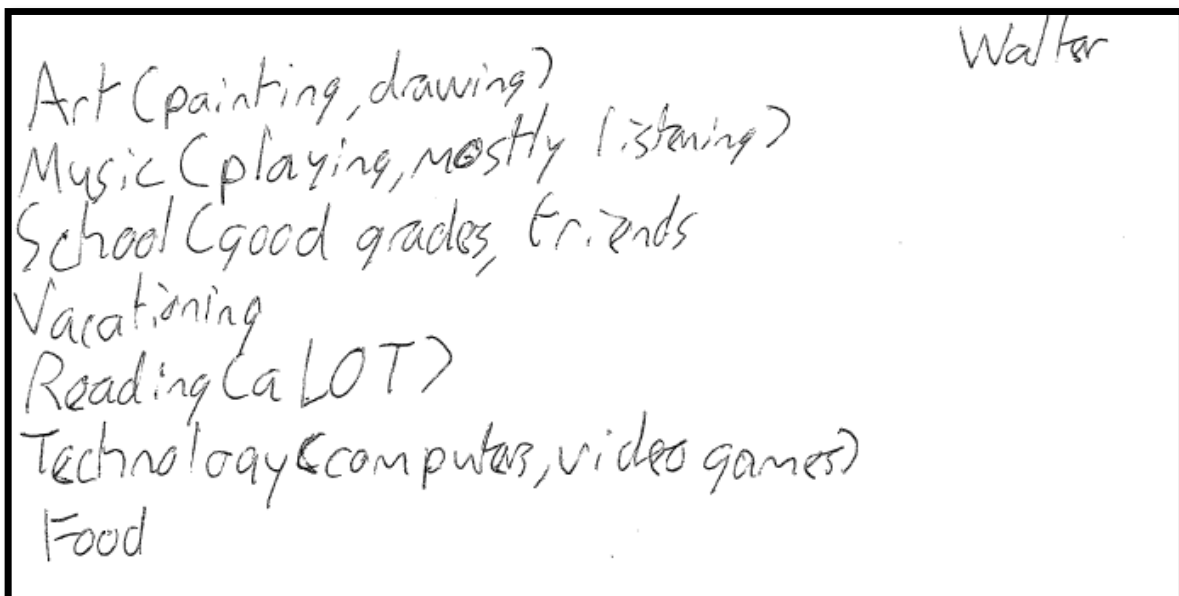 Walter
Art (painting, drawing)
Music (playing, mostly listening)
School (good grades, friends
Vacationing
Reading (a LOT)
Technology (computers, video games)
Food